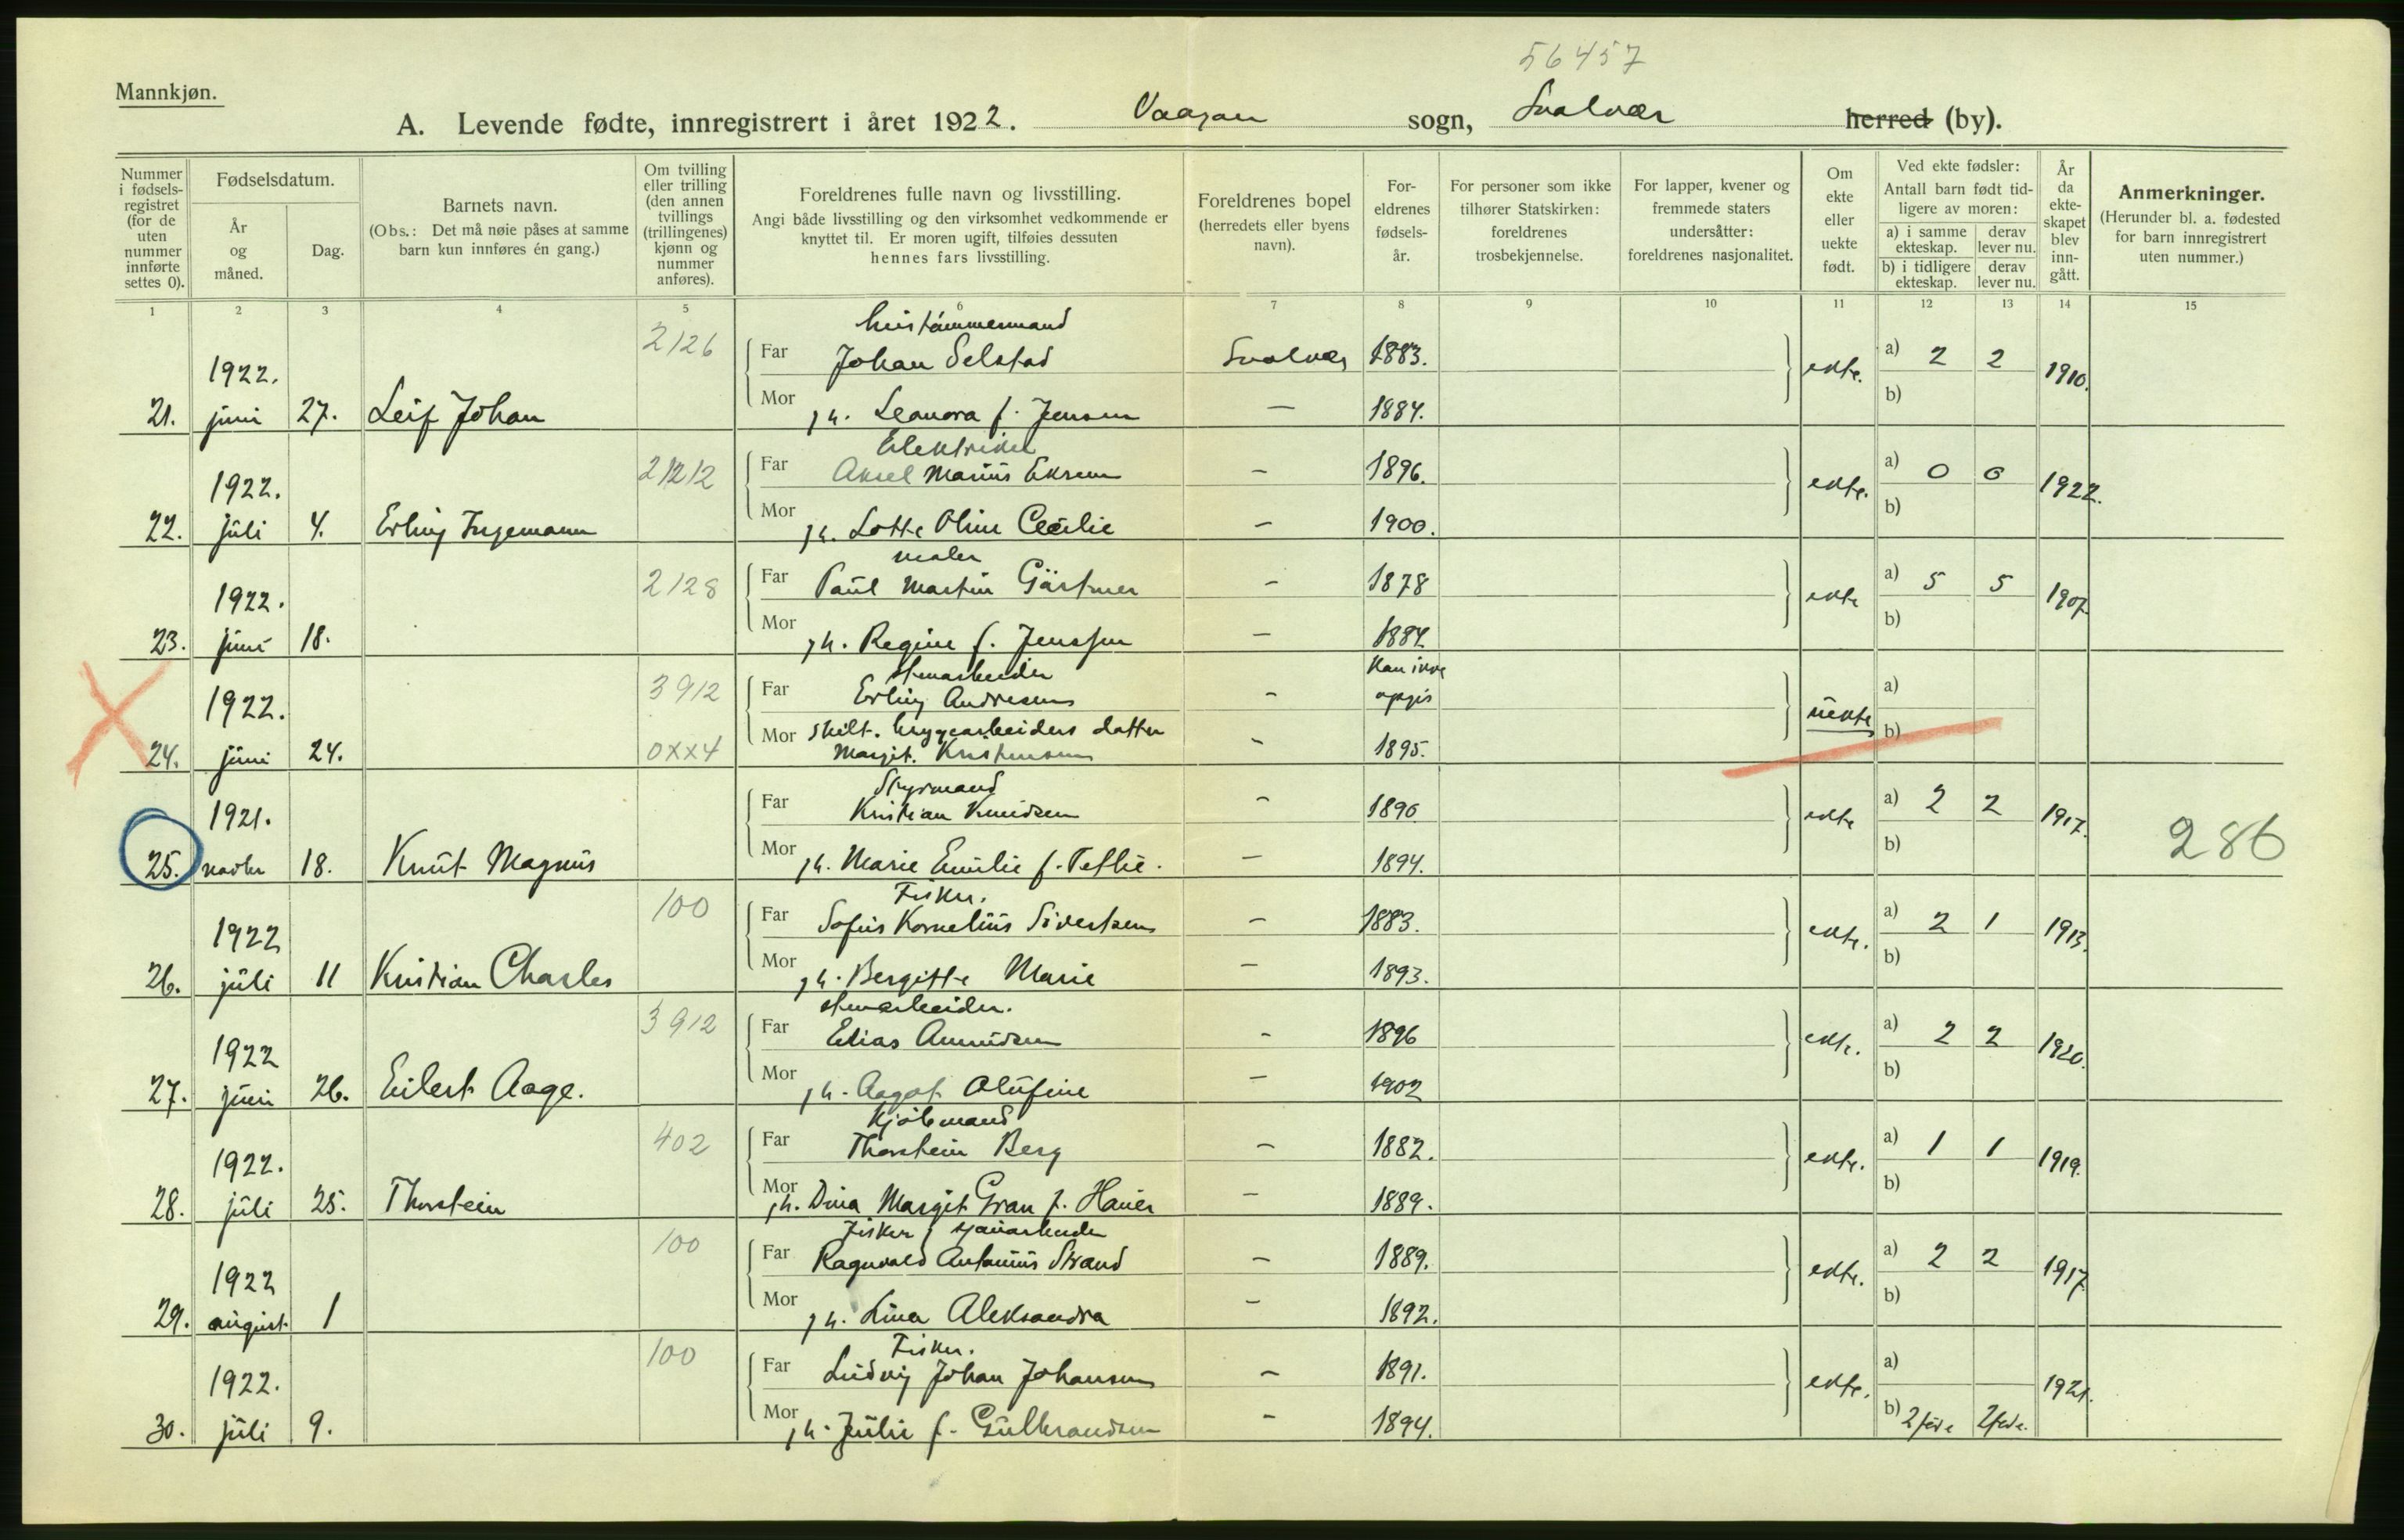 56457
Mannkjøn.
A. Levende fødte, innregistrert i året 1922. Vaagan sogn, Svolvær herred (by).
Nummer i fødsels-registret (for de uten nummer innførte settes 0).
Fødselsdatum.
År og måned.
Dag.
Barnets navn.
(Obs.: Det må nøie påses at samme barn kun innføres én gang.)
Om tvilling eller trilling (den annen tvillings (trillingenes) kjønn og nummer anføres).
Foreldrenes fulle navn og livsstilling.
Angi både livsstilling og den virksomhet vedkommende er knyttet til. Er moren ugift, tilføies dessuten hennes fars livsstilling.
Foreldrenes bopel (herredets eller byens navn).
For-eldrenes fødsels-år.
For personer som ikke tilhører Statskirken: foreldrenes trosbekjennelse.
For lapper, kvener og fremmede staters undersåtter: foreldrenes nasjonalitet.
Om ekte eller uekte født.
Ved ekte fødsler:
Antall barn født tid-ligere av moren:
a) i samme ekteskap. derav lever nu.
b) i tidligere ekteskap. derav lever nu.
År da ekte-skapet blev inn-gått.
Anmerkninger.
(Herunder bl. a. fødested for barn innregistrert uten nummer.)
1 2 3 4 5 6 7 8 9 10 11 12 13 14 15
hustømmermand
2126 Far Johan Selstad Svolvær 1883. a) 2 2
1922. ekte. 1910.
21. juni 27. Leif Johan Mor h. Leanora f. Jensen — 1884. b)
Elektriker
2212 Far Aksel Marius Eksem – 1896. a) 0 0
1922. ekte. 1922.
22. juli 4. Erling Ingemann Mor h. Lotte Oline Cecilie – 1900. b)
maler
2128 Far Paul Martin Gärtner – 1878 a) 5 5
1922. ekte 1907.
23. juni 18. Mor h. Regine f. Jenssen – 1884 b)
stenarbeider Kan ikke
3912 Far Erling Andresen – opgis a)
1922. uekte
Mor skilt. bryggearbeiders datter b)
24. juni 24. 0XX4 Margit. Kristensen – 1895.
Styrmand
Far Kristian Knudsen – 1890 a) 2 2
1921. ekte 1917. 286
25. novbr 18. Knut Magnus Mor h. Marie Emilie f. Teflie. – 1894. b)
Fisker.
100 Far Sofus Kornelius Sivertsen – 1883. a) 2 1
1922 ekte. 1913.
26. juli 11 Kristian Charles Mor h. Bergitte Marie – 1893. b)
stenarbeider.
3912 Far Elias Amundsen – 1896 a) 2 2
1922 ekte. 1920.
27. juni 26. Eilert Aage. Mor h. Aagot Olufine – 1902 b)
Kjøbmand
402 Far Thorstein Berg – 1882. a) 1 1
1922. ekte. 1919.
28. juli 25. Thorstein Mor h. Dina Margit Gran f. Hauer – 1889. b)
Fisker, sjauarbeider
100 Far Ragnvald Antonius Strand – 1889. a) 2 2
1922 ekte. 1917
29. august. 1 Mor h. Lina Aleksandra – 1892. b)
Fisker.
100 Far Ludvig Johan Johansen – 1891. a)
1922. ekte. 1921.
30. juli 9. Mor h. Julie f. Gulbrandsen – 1894. b) 2 fød. 2 fød.